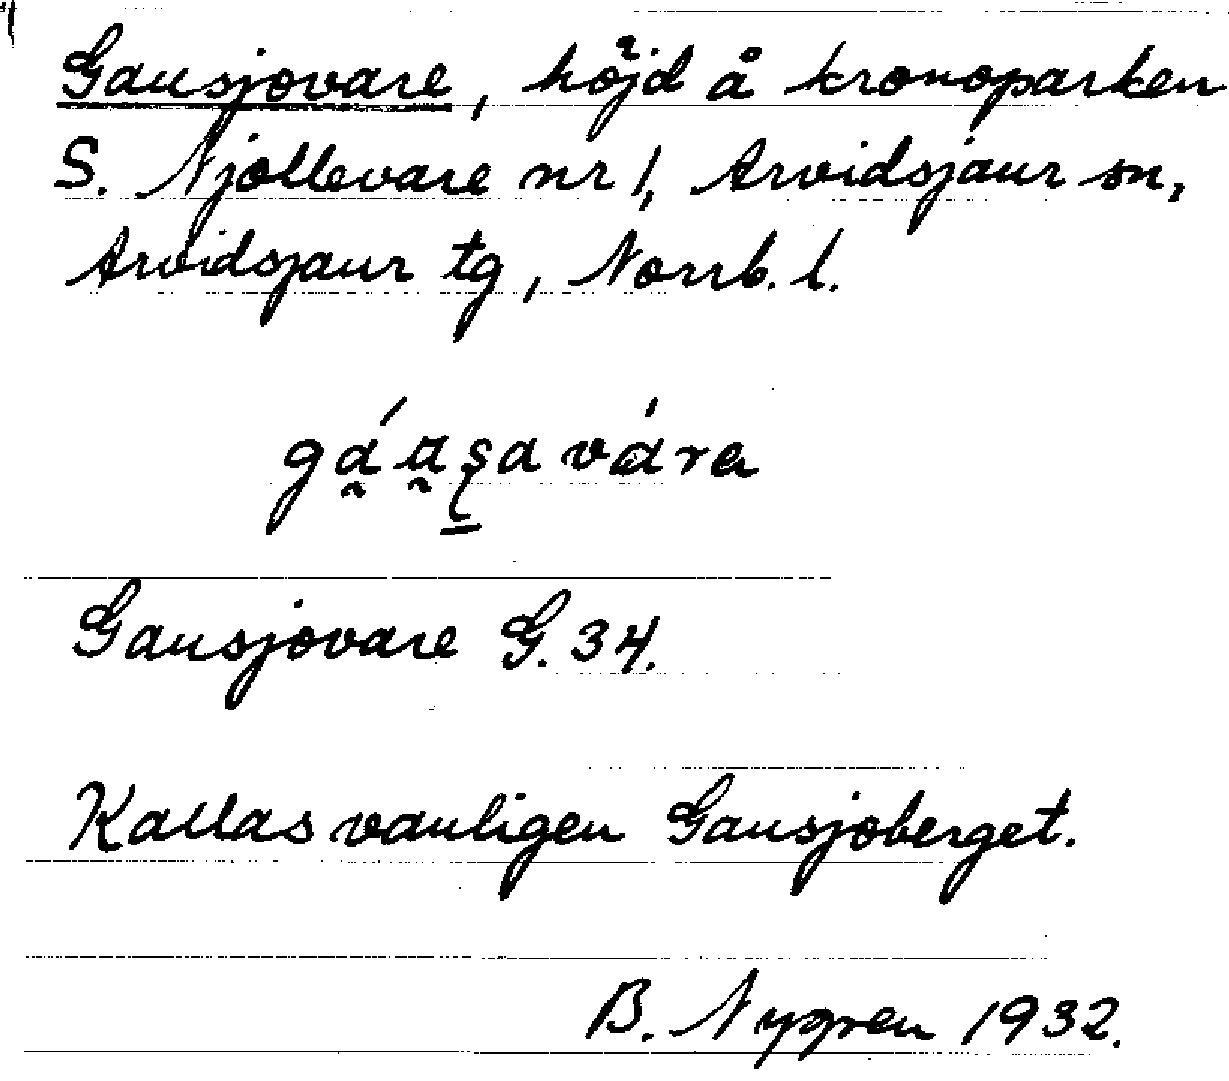 Gausjovare, höjd å kronoparken
S. Njallevare nr 1, Arvidsjaur sn,
Arvidsjaur tg, Norrb. l.
Gausjovare G. 34.
Kallas vanligen Gausjoberget.
B. Nygren 1932.